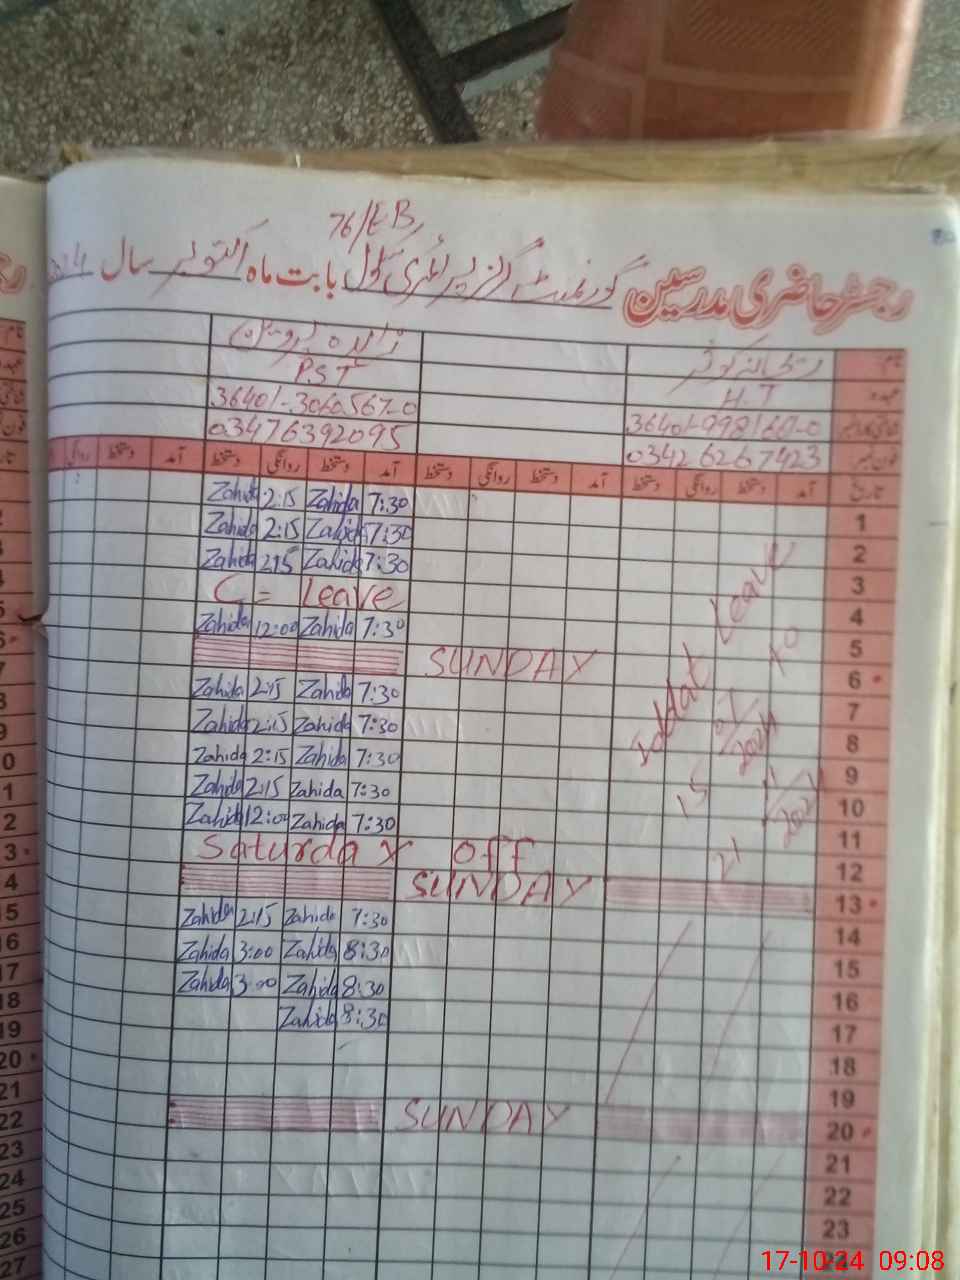 76/EB
رجسٹر حاضری مدرسین گورنمنٹ گرلز پرائمری سکول بابت ماہ اکتوبر سال
نام
زاہدہ پروین
عہدہ H.T P.S.T
شناختی کارڈ نمبر 36401-3060567-0
فون نمبر 03426267423 03476392095
تاریخ آمد دستخط روانگی دستخط آمد دستخط روانگی دستخط آمد دستخط روانگی دستخط آمد دستخط روانگی
1 7:30 Zahida 2:15 Zahida
2 7:30 Zahida 2:15 Zahida
3 7:30 Zahida 2:15 Zahida
4 C = Leave
5 7:30 Zahida 12:00 Zahida
6 SUNDAY
7 7:30 Zahida 2:15 Zahida
8 7:30 Zahida 2:15 Zahida
9 7:30 Zahida 2:15 Zahida
10 7:30 Zahida 2:15 Zahida
11 7:30 Zahida 12:00 Zahida
12 Saturday off
13 SUNDAY
14 7:30 Zahida 2:15 Zahida
15 8:30 Zahida 3:00 Zahida
16 8:30 Zahida 3:00 Zahida
17 8:30 Zahida
18
19
20 SUNDAY
21
22
23
Iddat Leave
15 07/2024 to
21 11/2024
17-10-24 09:08